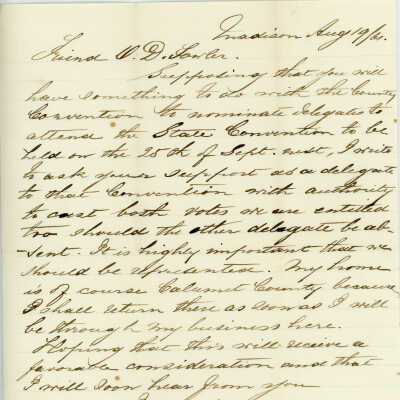 Madison Aug 19/61.
Friend O. D. Fowler.
Supposing that you will
have something to do with the County
Convention to nominate delegates to
attend the State Convention to be
held on the 25th of Sept. next, I write
to ask your support as a delegate
to that Convention with authority
to cast both votes we are entitled
too should the other delegate be ab-
sent. It is highly important that we
should be represented. My home
is of course Calumet County because
I shall return there as soon as I will
be through my business here.
Hoping that this will receive a
favorable consideration and that
I will soon hear from you